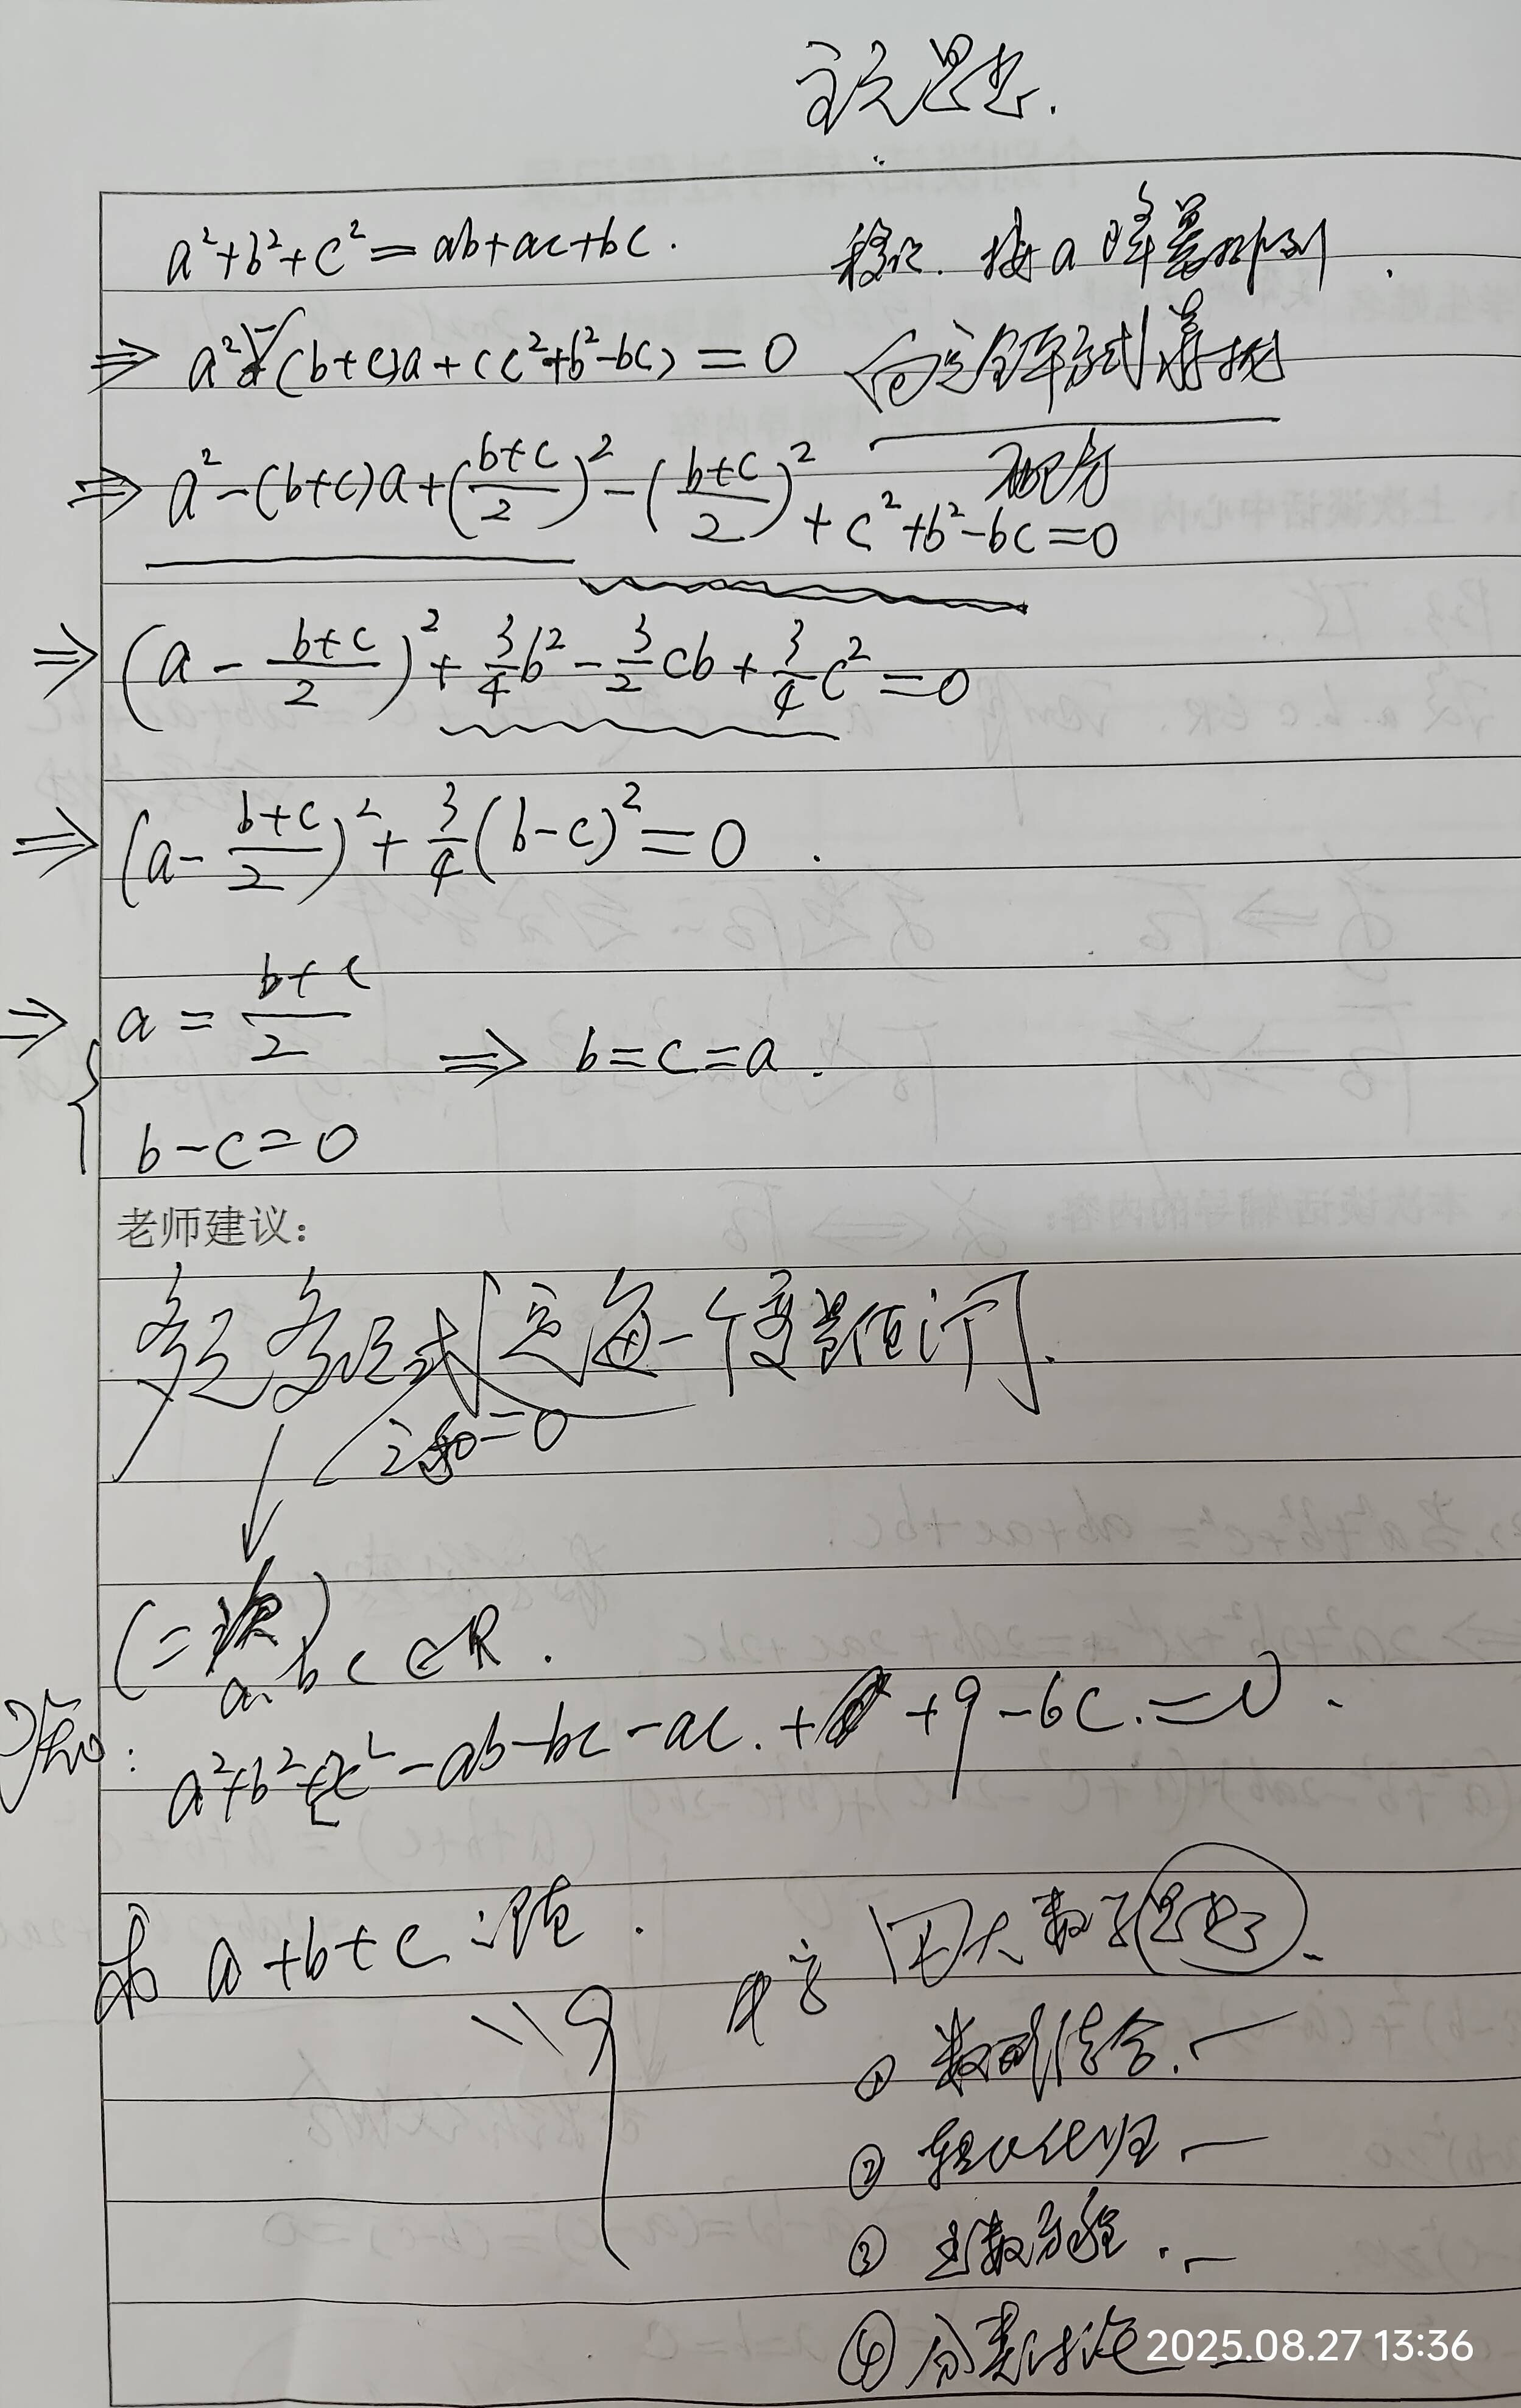 主元思想.
a²+b²+c²=ab+ac+bc. 移项. 按a降幂排列.
⇒ a²-(b+c)a+(c²+b²-bc)=0 向完全平方式靠拢
配方
⇒ a²-(b+c)a+(\frac{b+c}{2})²-(\frac{b+c}{2})²+c²+b²-bc=0
⇒ (a-\frac{b+c}{2})²+\frac{3}{4}b²-\frac{3}{2}cb+\frac{3}{4}c²=0
⇒ (a-\frac{b+c}{2})²+\frac{3}{4}(b-c)²=0.
⇒ { a=\frac{b+c}{2}
⇒ b=c=a.
b-c=0
老师建议：
多元多项式 每一个变量值
=0
(二次)
a. b c ∈ R.
a²+b²+2c²-ab-bc-ac.+9-6c.=0.
求 a+b+c 之值.
"9
四大数学思想.
① 数形结合.
② 转化化归
③ 函数方程.
④ 分类讨论
2025.08.27 13:36